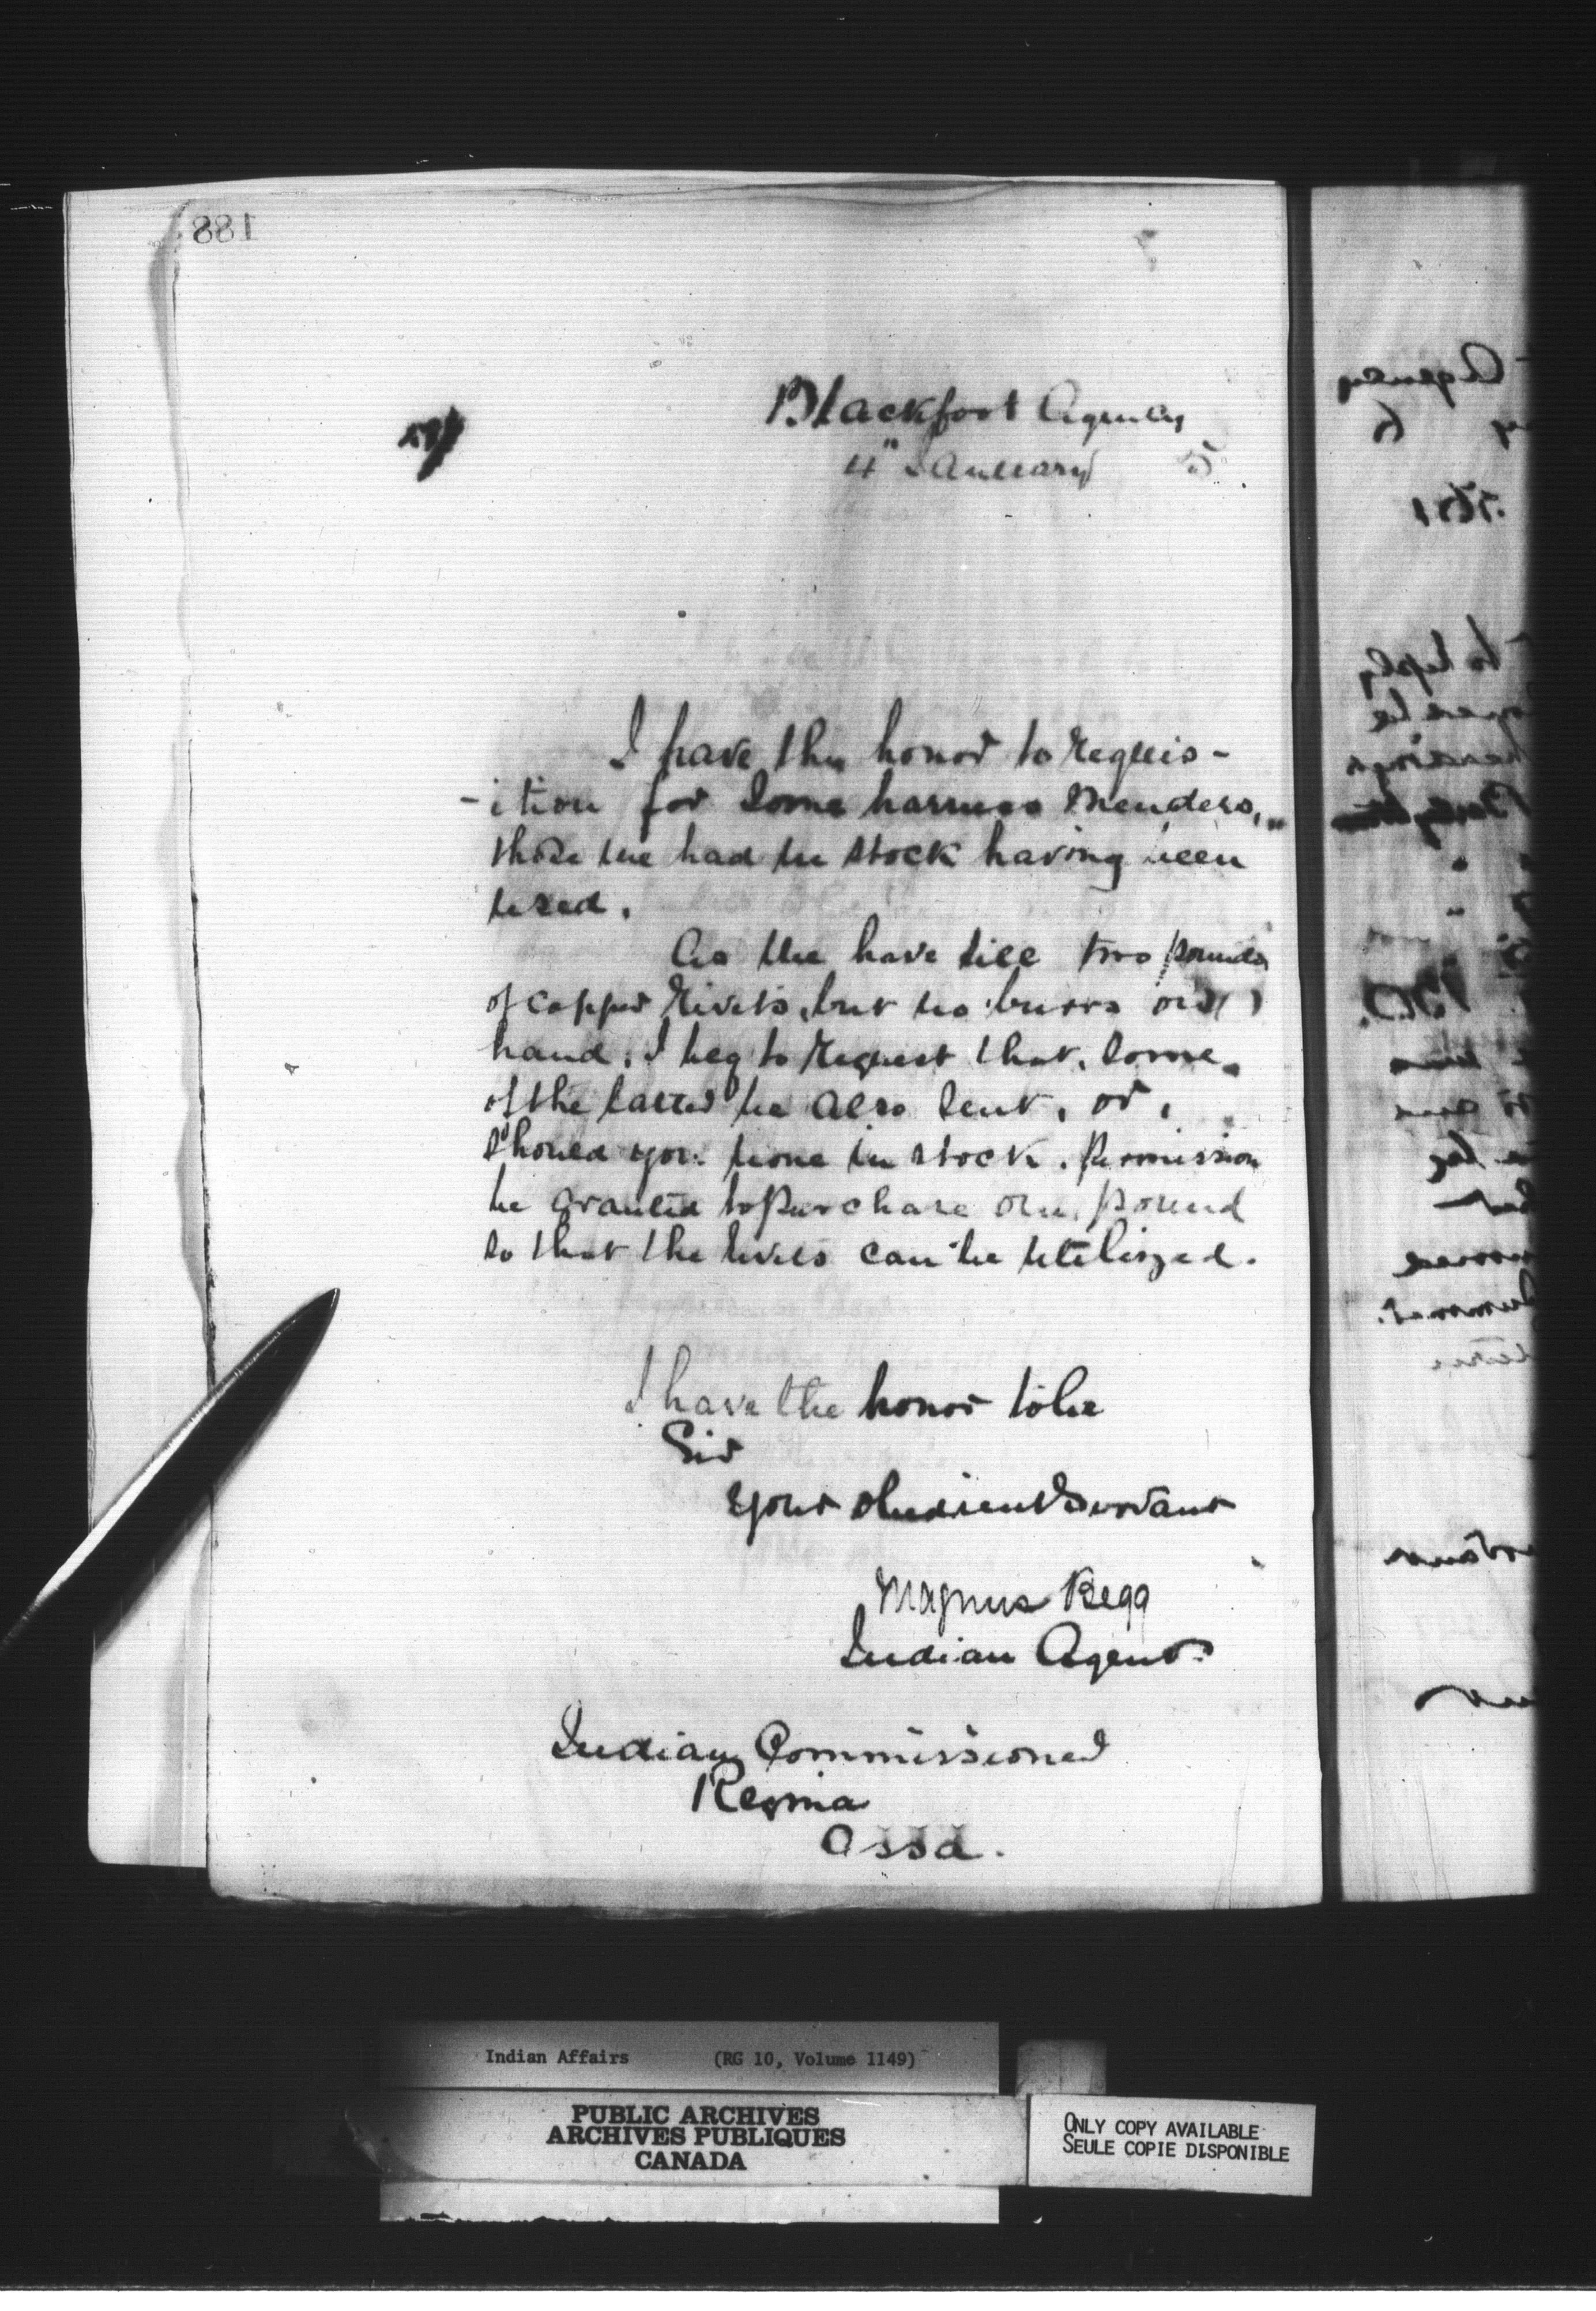 188
Blackfoot Agency
4" January 5
I have the honor to requis-
-ition for some harness menders,
those we had in stock having been
used.
As we have still two pounds
of copper rivets, but no burrs on
hand, I beg to request that, some
of the latter be also sent, or,
should you none in stock, permission
be granted to purchase one pound
so that the rivets can be utilized.
I have the honor to be
Sir
Your obedient Servant
Magnus Begg
Indian Agent.
Indian Commissioner
Regina
Assa.
Agency
6
to reply
Indian Affairs (RG 10, Volume 1149)
PUBLIC ARCHIVES
ARCHIVES PUBLIQUES
CANADA
ONLY COPY AVAILABLE
SEULE COPIE DISPONIBLE